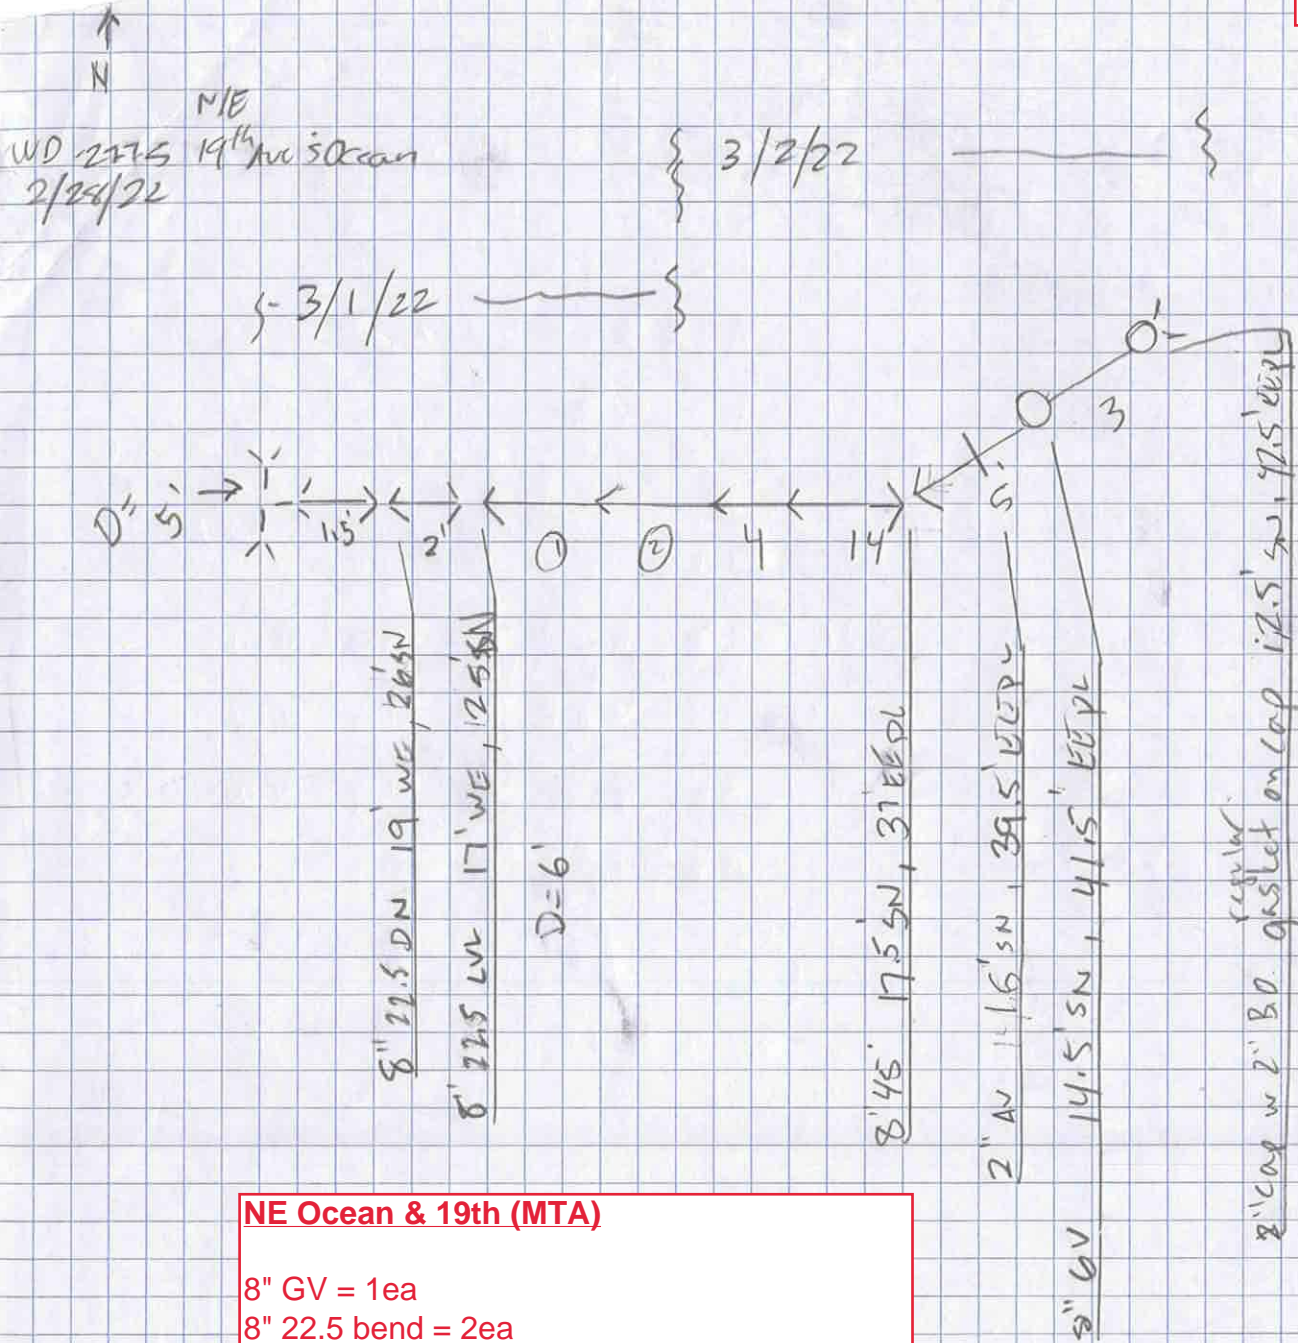 N
N/E
WD 2775 19th Ave & Ocean
2/28/22
3/2/22
3/1/22
5'
1.5'
2'
①
②
4
14
5'
3
1'
8" 22.5 DN 19' WE, 26' SN
8" 22.5 LVL 17' WE, 25' SN
D=6'
8" 45 17.5' SN, 37' EEPL
2" AV 16' SN, 39.5' EEPL
8" GV 14.5' SN, 41.5' EEPL
regular
8" cap w 2" B.O. gasket on cap 12.5' SN, 42.5' EEPL
NE Ocean & 19th (MTA)
8" GV = 1ea
8" 22.5 bend = 2ea